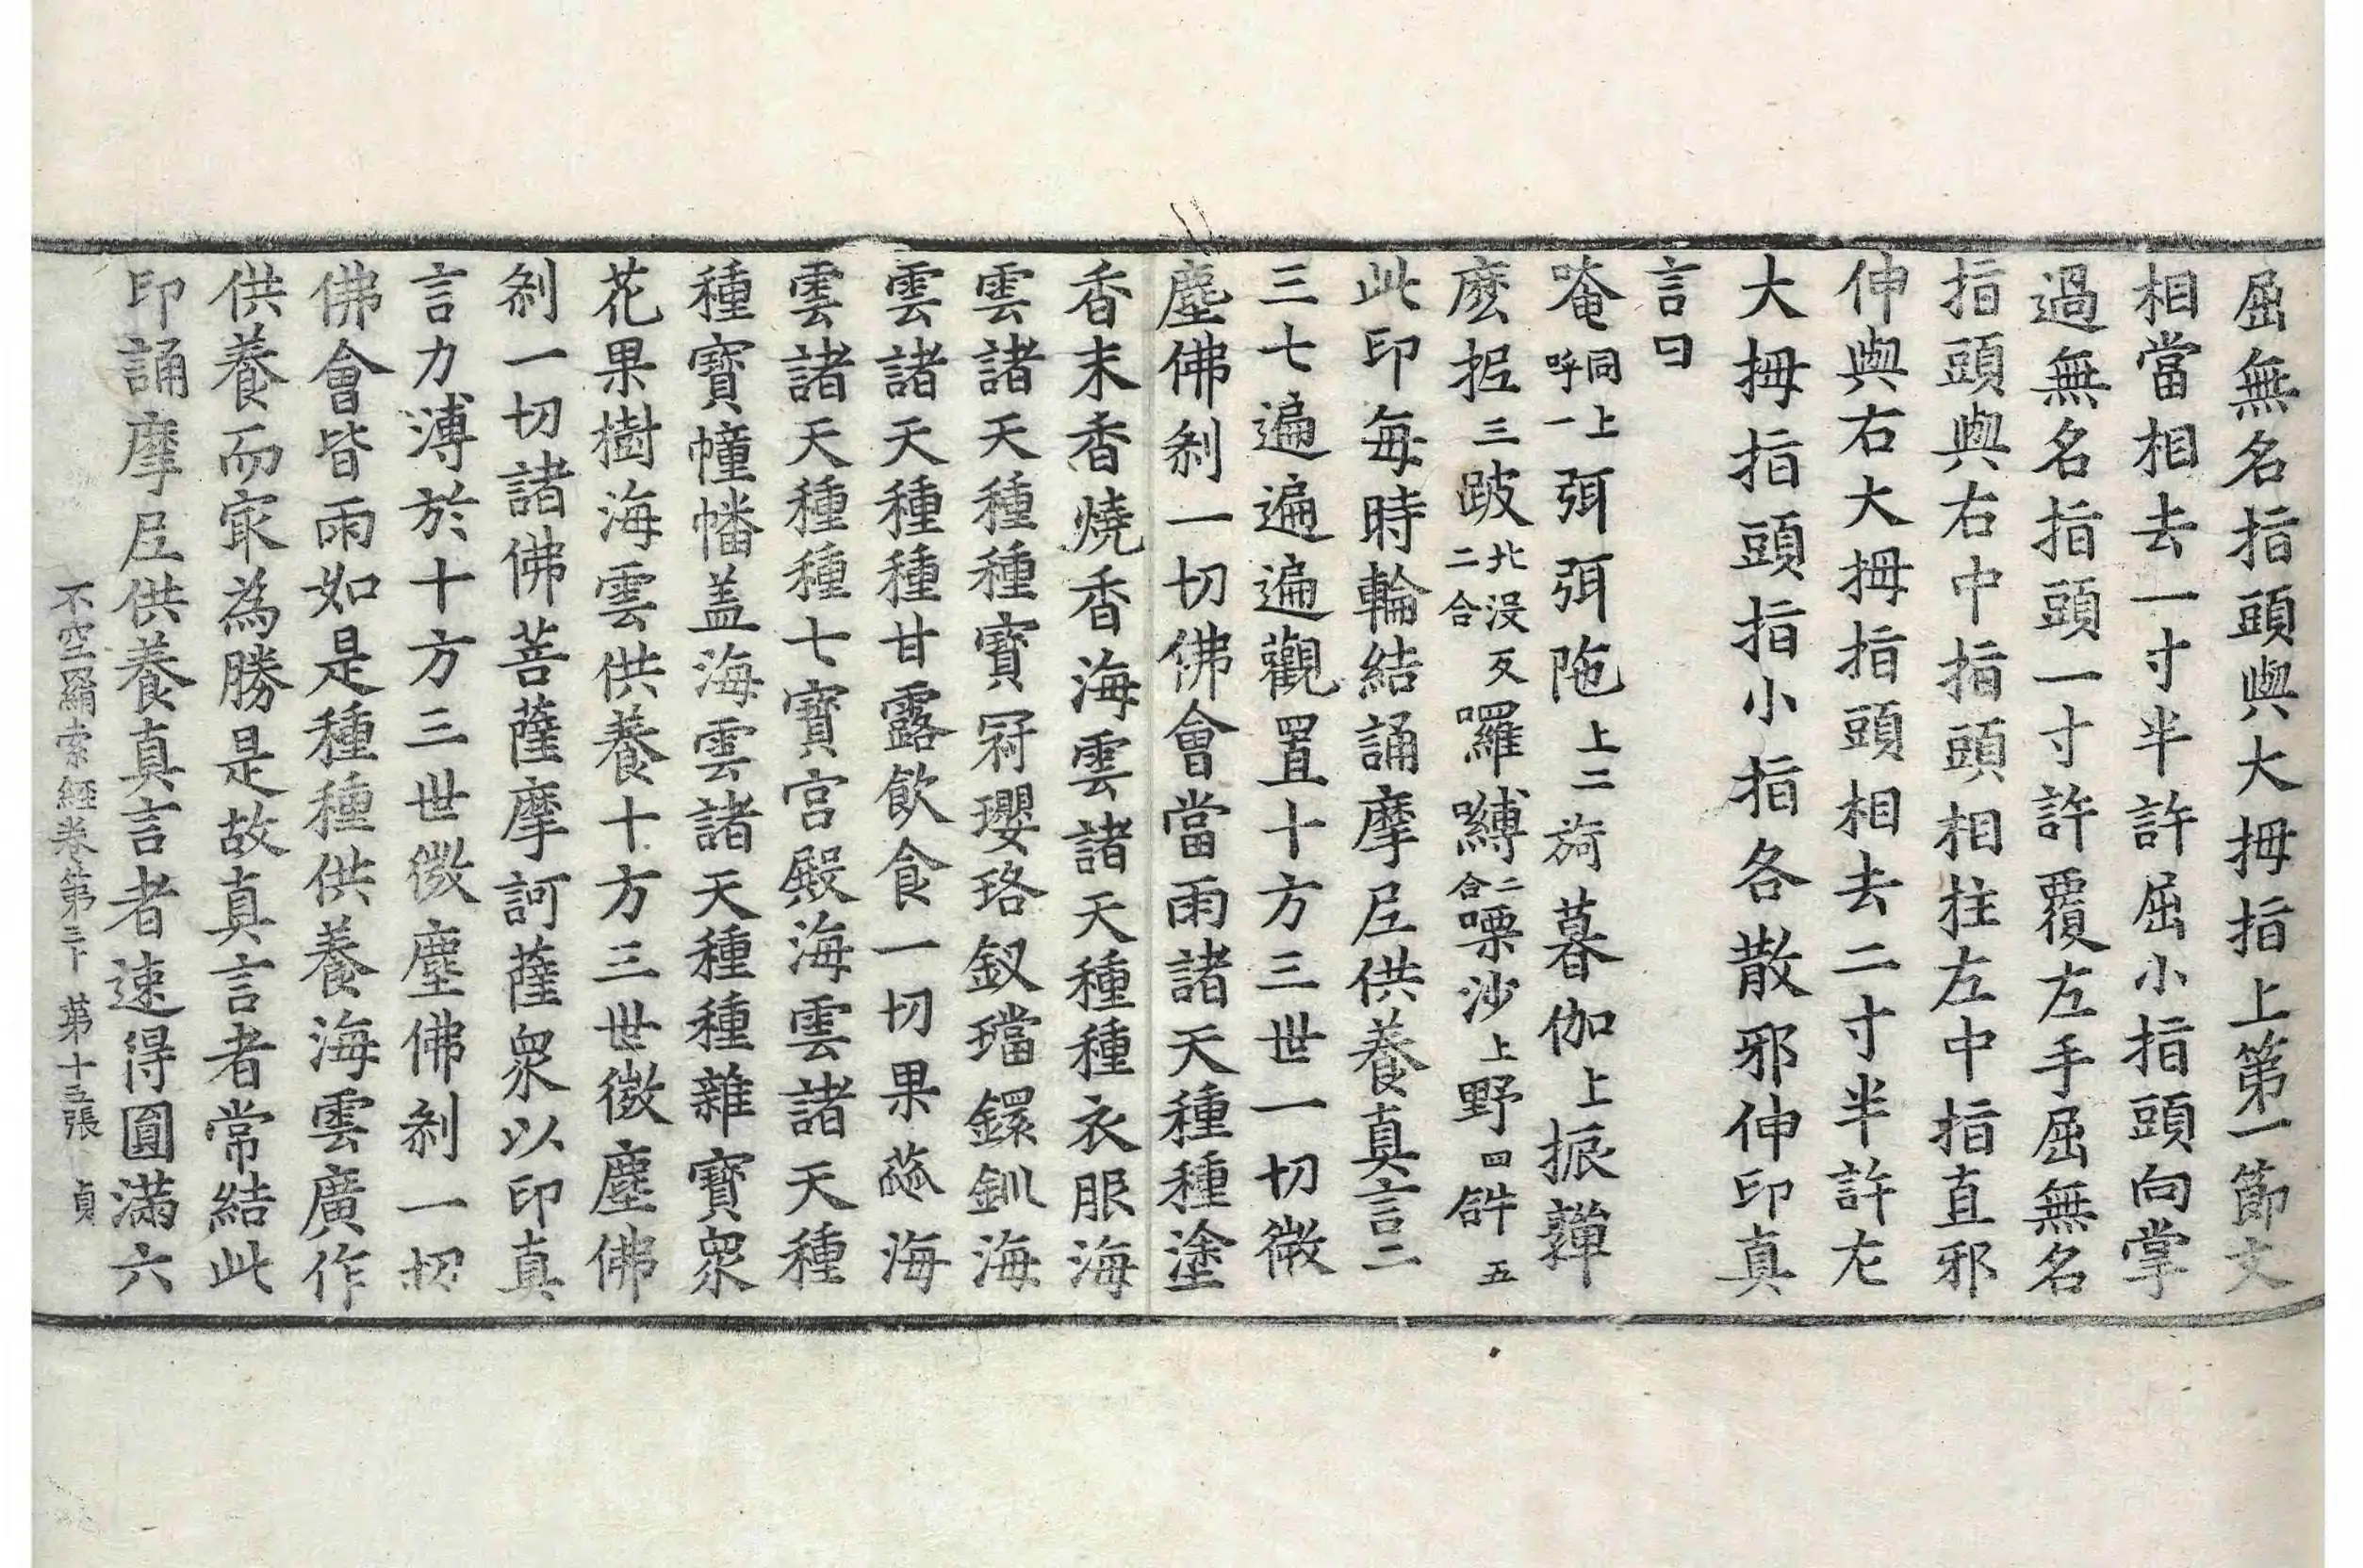 屈無名指頭與大拇指上第一節文
相當相去一寸半許屈小指頭向掌
過無名指頭一寸許覆左手屈無名
指頭與右中指頭相拄左中指直邪
伸與右大拇指頭相去二寸半許左
大拇指頭指小指各散邪伸印真
言曰
唵同上呼一弭弭陁上二旖暮伽上振韗
麽抳三跛北没反二合囉嚩二合㗚沙上野四𤙖五
此印每時輪結誦摩尼供養真言二
三七遍遍遍觀置十方三世一切微
塵佛剎一切佛會當雨諸天種種塗
香末香燒香海雲諸天種種衣服海
雲諸天種種寶冠瓔珞釵璫鐶釧海
雲諸天種種甘露飲食一切果蓏海
雲諸天種種七寶宮殿海雲諸天種
種寶幢幡盖海雲諸天種種雜寶衆
花果樹海雲供養十方三世微塵佛
剎一切諸佛菩薩摩訶薩衆以印真
言力溥於十方三世微塵佛剎一切
佛會皆雨如是種種供養海雲廣作
供養而㝡為勝是故真言者常結此
印誦摩尼供養真言者速得圓滿六
不空羂索經卷第三下 第十五張 貞